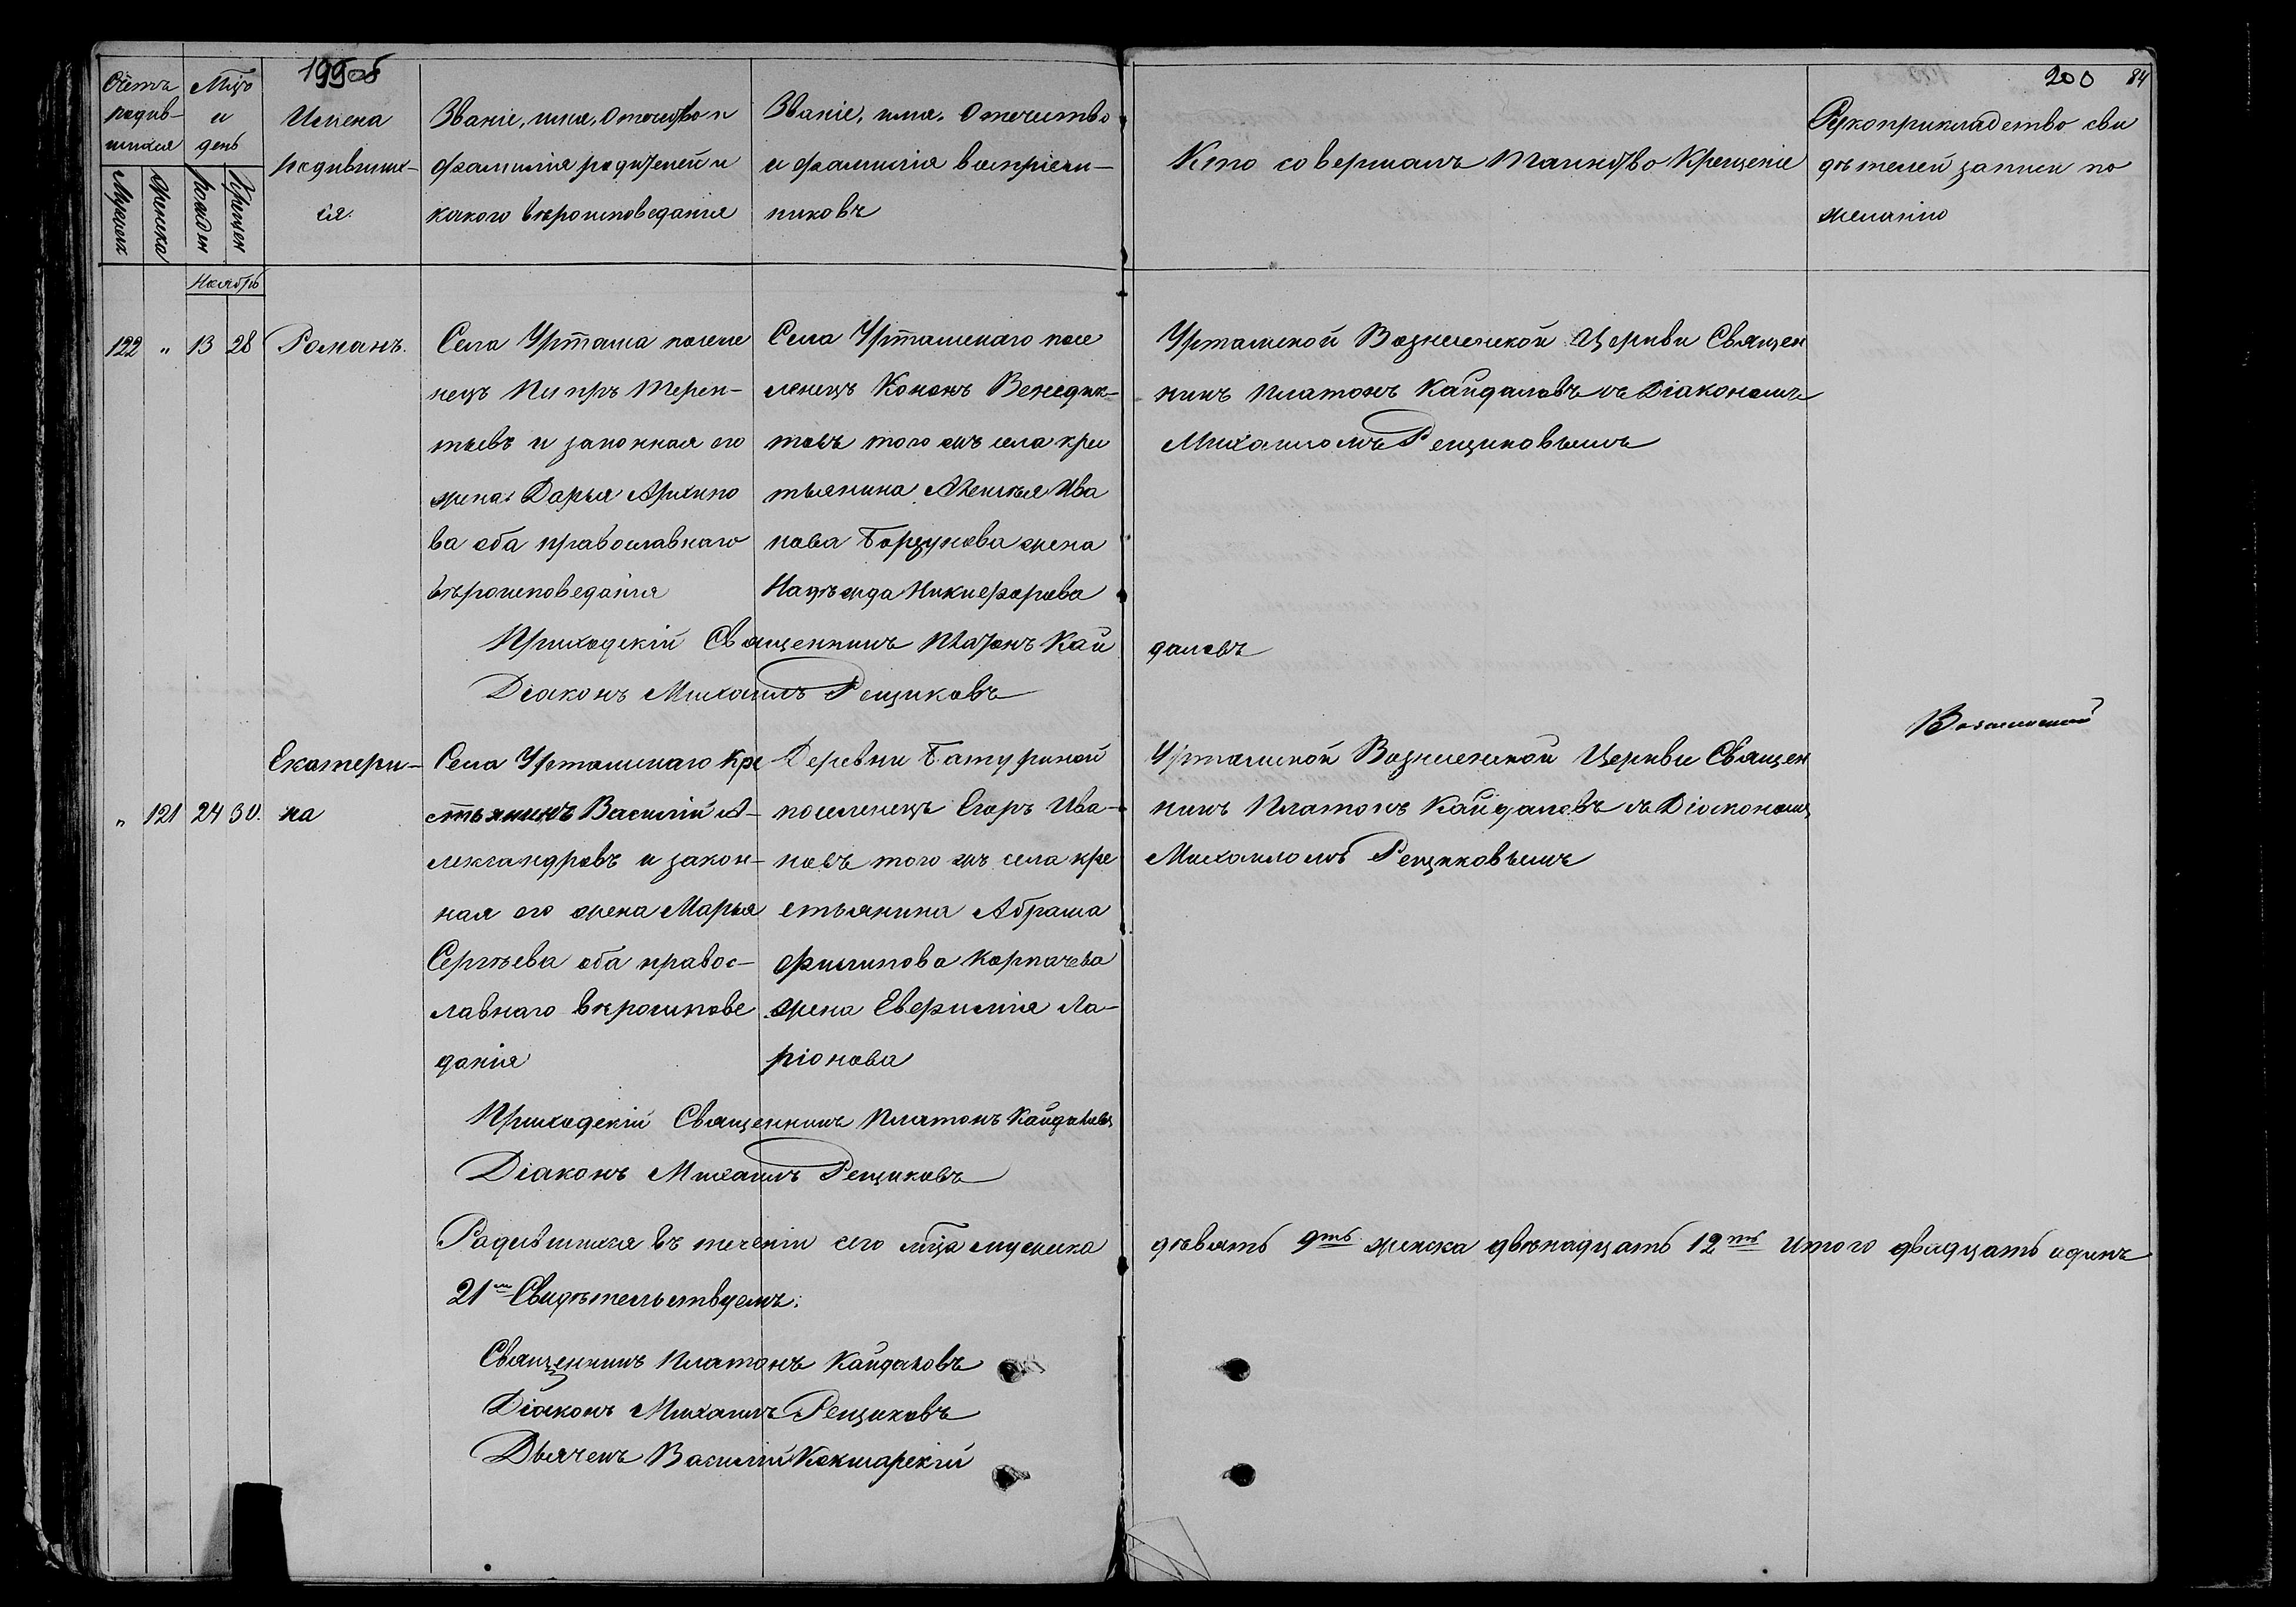 199об
200 84
Счетъ родив-шихся
Мцъ и день
Имена родивших-ся.
Званіе, имя, Отечество и
фамилія родителей и
какого вѣроисповеданія
Званіе, имя, Отечество
и фамилія воспріем-
никовъ
Кто совершалъ таинство Крещеніе
Рукоприкладство сви
дѣтелей записи по
желанію
Мужеск
Женска
рожден
Крещен
Ноябрь
122 " 13 28 Романъ.
Села Урташа поселе
нецъ Петръ Терен-
тьевъ и законная его
жена Дарья Архипо
ва оба православнаго
вѣроисповеданія
Села Урташскаго посе
ленецъ Кононъ Венедик-
товъ того жъ села крес
тьянина Ивана
нова Борзунова жена
Надѣжда Никиефорова
Урташской Вознесенской Церкви Священ
никъ Платонъ Кайдаловъ съ Діакономъ
Михаиломъ Рещиковымъ
Приходскій Священникъ Платонъ Кай даловъ
Діаконъ Михаилъ Рещиковъ
" 121 24 30. Екатери-
на
Села Урташскаго Кре
стьянинъ Василій А-
лександровъ и закон-
ная его жена Марья
Сергѣева оба правос-
лавнаго вѣроиспове
данія
Деревни Батуриной
поселенецъ Егоръ Ива-
новъ того жъ села кре
стьянина Абрама
Филипова Корпачева
жена Евфимія Ла-
ріонова
Урташской Вознесенской Церкви Священ
никъ Платонъ Кайдаловъ съ Діакономъ
Михаиломъ Рещиковымъ
Приходскій Священникъ Платонъ Кайдаловъ
Діаконъ Михаилъ Рещиковъ
Родившихся въ теченіи сего мца мужска дѣвять 9ть женска двѣнадцать 12ть Итого двадцать одинъ
21нъ Свидѣтельствуемъ:
Священникъ Платонъ Кайдаловъ
Діаконъ Михаилъ Рещиковъ
Дьячекъ Василій Кокшарскій